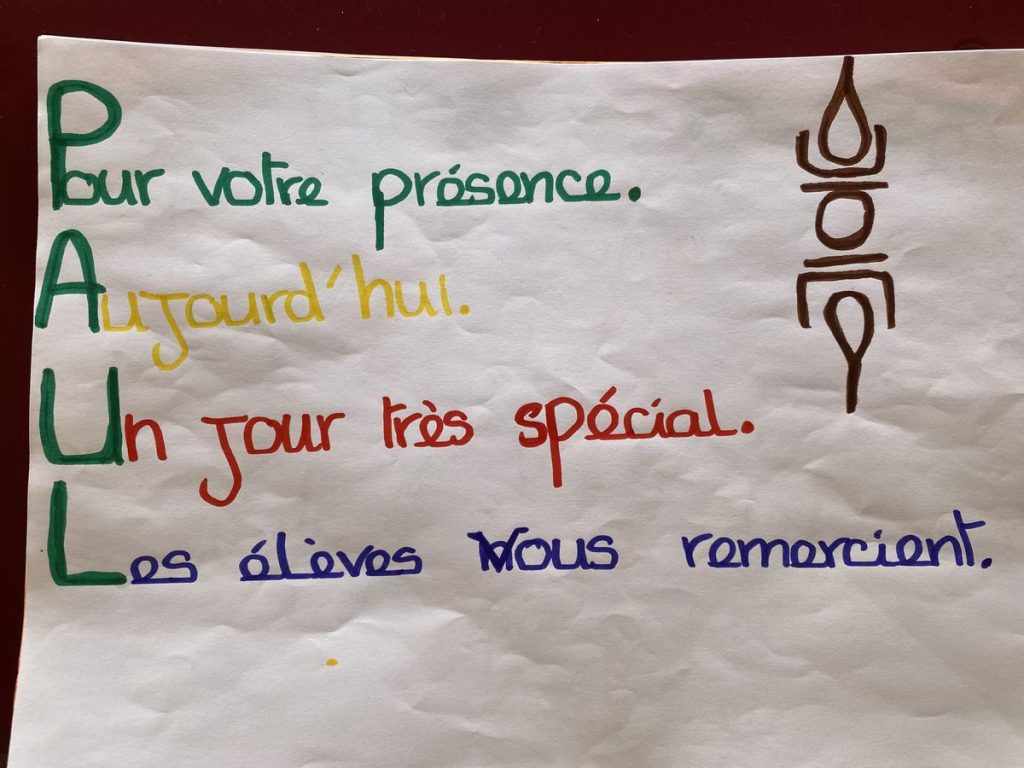 Pour votre présence.
Aujourd'hui.
Un jour très spécial.
Les élèves vous remercient.